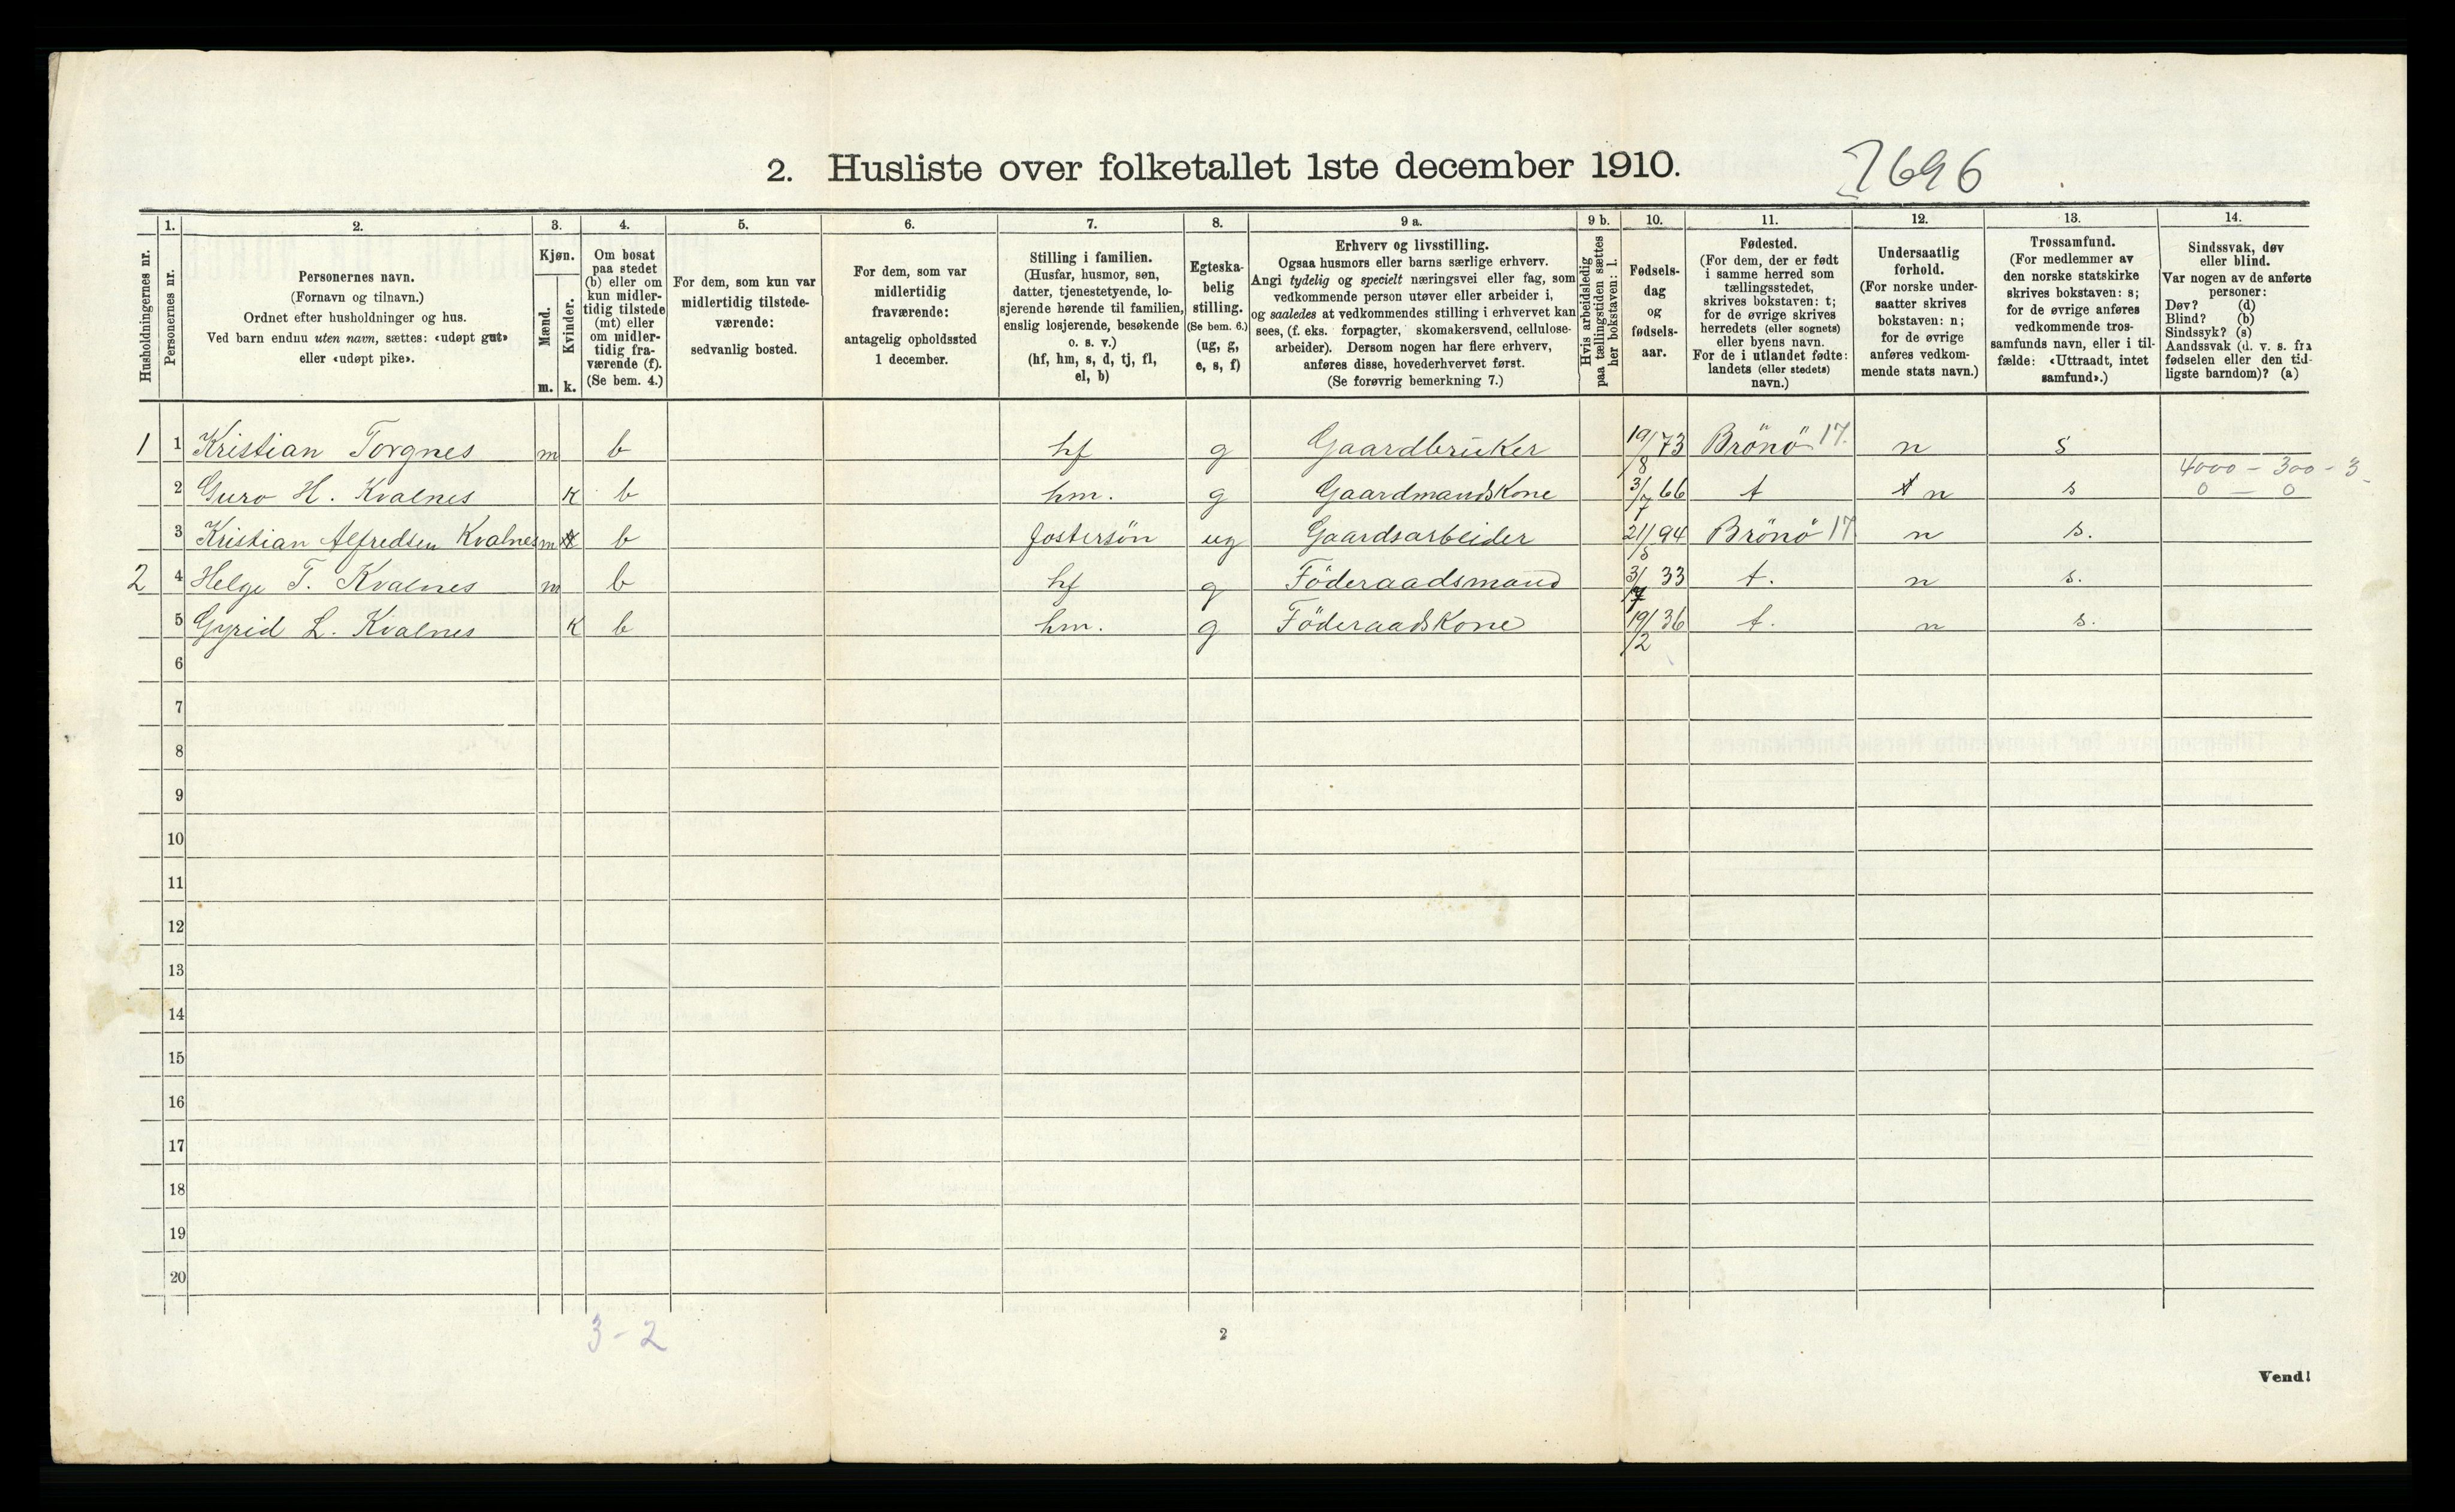 2. Husliste over folketallet 1ste december 1910.
2696
Husholdningernes nr.
1.
Personernes nr.
2.
Personernes navn.
(Fornavn og tilnavn.)
Ordnet efter husholdninger og hus.
Ved barn endnu uten navn, sættes: «udøpt gut»
eller «udøpt pike».
3.
Kjøn.
Mænd.
m.
Kvinder.
k.
4.
Om bosat
paa stedet
(b) eller om
kun midler-
tidig tilstede
(mt) eller
om midler-
tidig fra-
værende (f).
(Se bem. 4.)
5.
For dem, som kun var
midlertidig tilstede-
værende:
sedvanlig bosted.
6.
For dem, som var
midlertidig
fraværende:
antagelig opholdssted
1 december.
7.
Stilling i familien.
(Husfar, husmor, søn,
datter, tjenestetyende, lo-
sjerende hørende til familien,
enslig losjerende, besøkende
o. s. v.)
(hf, hm, s, d, tj, fl,
el, b)
8.
Egteska-
belig
stilling.
(Se bem. 6.)
(ug, g,
e, s, f)
9 a.
Erhverv og livsstilling.
Ogsaa husmors eller barns særlige erhverv.
Angi tydelig og specielt næringsvei eller fag, som
vedkommende person utøver eller arbeider i,
og saaledes at vedkommendes stilling i erhvervet kan
sees, (f. eks. forpagter, skomakersvend, cellulose-
arbeider). Dersom nogen har flere erhverv,
anføres disse, hovederhvervet først.
(Se forøvrig bemerkning 7.)
9 b.
Hvis arbeidsledig
paa tællingstiden sættes
her bokstaven: l.
10.
Fødsels-
dag
og
fødsels-
aar.
11.
Fødested.
(For dem, der er født
i samme herred som
tællingsstedet,
skrives bokstaven: t;
for de øvrige skrives
herredets (eller sognets)
eller byens navn.
For de i utlandet fødte:
landets (eller stedets)
navn.)
12.
Undersaatlig
forhold.
(For norske under-
saatter skrives
bokstaven: n;
for de øvrige
anføres vedkom-
mende stats navn.)
13.
Trossamfund.
(For medlemmer av
den norske statskirke
skrives bokstaven: s;
for de øvrige anføres
vedkommende tros-
samfunds navn, eller i til-
fælde: «Uttraadt, intet
samfund».)
14.
Sindssvak, døv
eller blind.
Var nogen av de anførte
personer:
Døv? (d)
Blind? (b)
Sindssyk? (s)
Aandssvak (d. v. s. fra
fødselen eller den tid-
ligste barndom)? (a)
1 1 Kristian Torgnes m b hf g Gaardbruker 19/8 73 Brönö 17. n s
4000 - 300 - 3
2 Guro H. Kvalnes k b hm. g Gaardmandskone 3/7 66 t n s 0 - 0
3 Kristian Alfredsen Kvalnes m b fostersön ug Gaardsarbeider 21/8 94 Brönö 17 n s.
2 4 Helge T. Kvalnes m b hf g Föderaadsmand 3/7 33 t. n s.
5 Gyrid L. Kvalnes k b hm. g Föderaadskone 19/2 36 t. n s.
6
7
8
9
10
11
12
13
14
15
16
17
18
19
20
3-2
2
Vend!